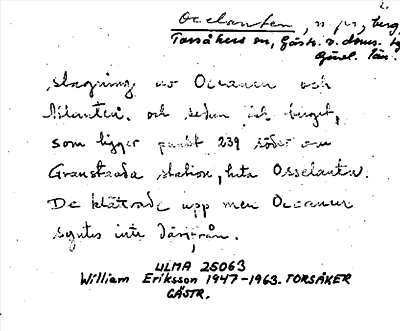 2.
Ocelanten, n. pr., berg,
Torsåkers sn, Gästr. ö. doms.
Gävl. län.
slagning av Oceanen och
Atlanten. och sedan fick berget,
som ligger punkt 239 söder om
Granstanda station, heta Osselanten.
De klättrade upp men Oceanen
syntes inte därifrån.
ULMA 25063
William Eriksson 1947-1963. TORSÅKER
GÄSTR.